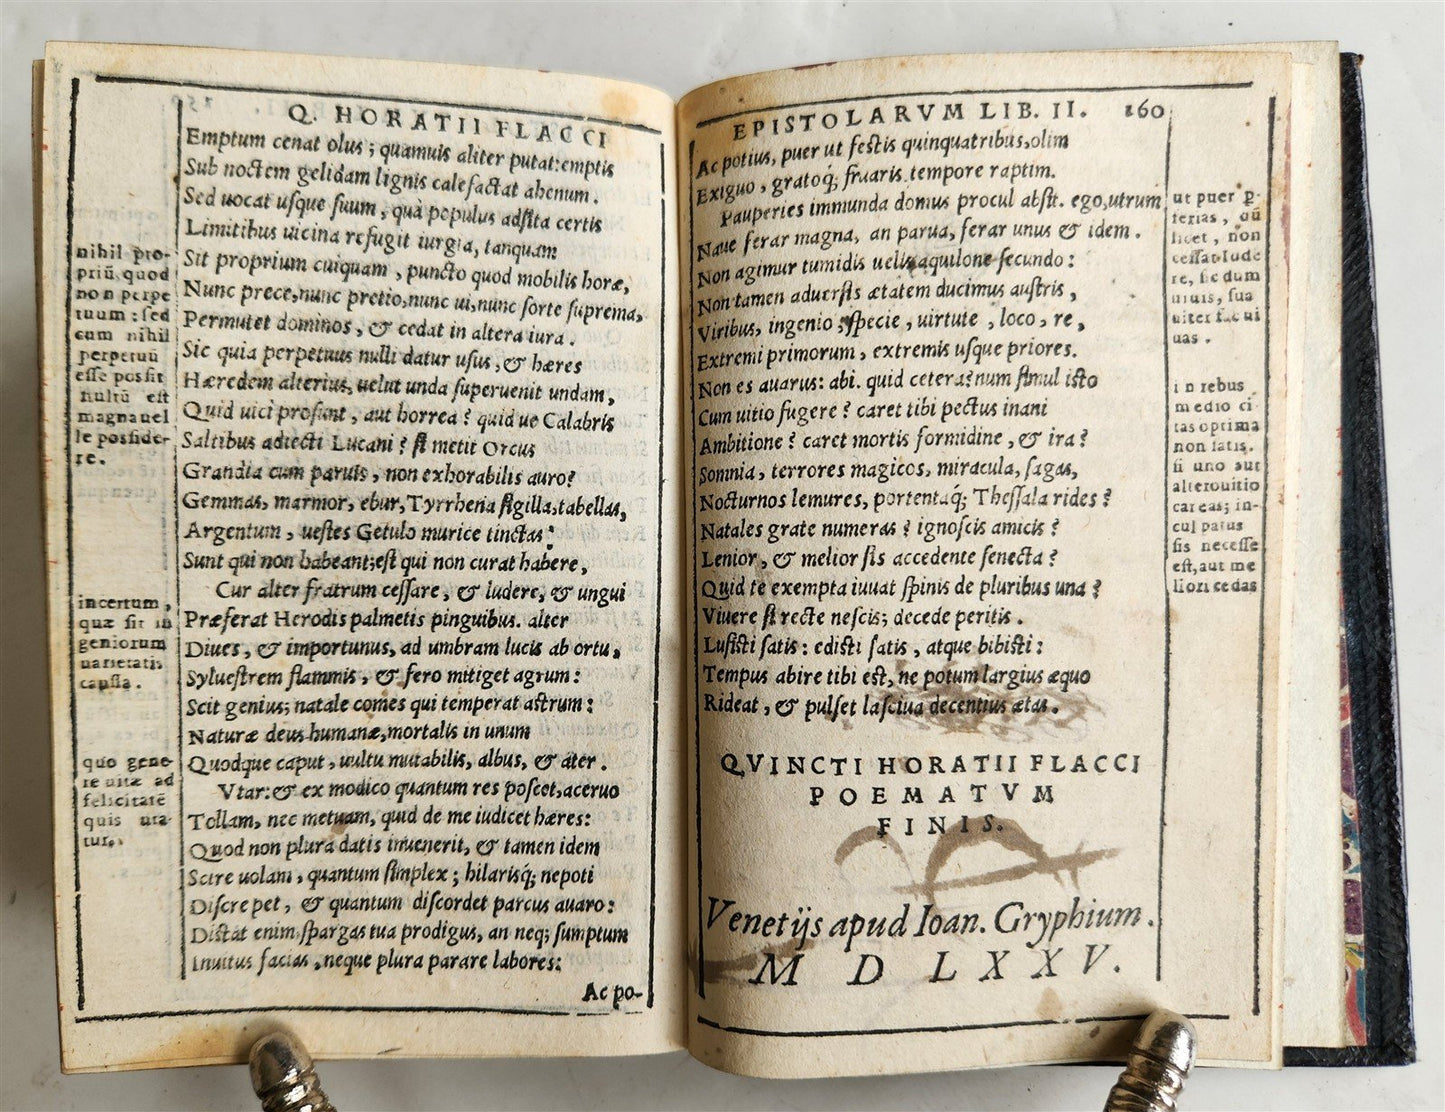 Q. HORATII FLACCI
Emptum cenat olus; quamuis aliter putat: emptis
Sub noctem gelidam lignis calefactat ahenum.
Sed uocat usque suum, quà populus adsita certis
Limitibus uicina refugit iurgia, tanquam
Sit proprium cuiquam, puncto quod mobilis horæ,
Nunc prece, nunc pretio, nunc ui, nunc sorte suprema,
Permutet dominos, & cedat in altera iura.
Sic quia perpetuus nulli datur usus, & hæres
Hæredem alterius, uelut unda superuenit undam,
Quid uici prosunt, aut horrea? quid ue Calabris
Saltibus adiecti Lucani? si metit Orcus
Grandia cum paruis, non exhorabilis auro?
Gemmas, marmor, ebur, Tyrrhena sigilla, tabellas,
Argentum, uestes Getulo murice tinctas:
Sunt qui non habeant; est qui non curat habere,
Cur alter fratrum cessare, & ludere, & ungui
Præferat Herodis palmetis pinguibus. alter
Diues, & importunus, ad umbram lucis ab ortu,
Syluestrem flammis, & fero mitiget agrum:
Scit genius; natale comes qui temperat astrum:
Naturæ deus humanæ, mortalis in unum
Quodque caput, uultu mutabilis, albus, & ater.
Vtar: & ex modico quantum res poscet, aceruo
Tollam, nec metuam, quid de me iudicet hæres:
Quod non plura datis inuenerit, & tamen idem
Scire uolam, quantum simplex; hilarisq; nepoti
Discrepet, & quantum discordet parcus auaro:
Distat enim, spargas tua prodigus, an neq; sumptum
Inuitus facias, neque plura parare labores:
Ac po-
nihil pro-
priũ quod
non perpe
tuum: sed
cum nihil
perpetuũ
esse possit
nultũ est
magna uel
le posside-
re.
incertum,
quæ sit in
geniorum
uarietatis
caussa.
quo gene-
re uitæ ad
felicitatẽ
quis uta-
tur.
EPISTOLARVM LIB. II. 160
Ac potius, puer ut festis quinquatribus, olim
Exiguo, gratoq; fruaris tempore raptim.
Pauperies immunda domus procul absit. ego, utrum
Naue ferar magna, an parua, ferar unus & idem.
Non agimur tumidis uelis aquilone secundo:
Non tamen aduersis ætatem ducimus austris,
Viribus, ingenio, specie, uirtute, loco, re,
Extremi primorum, extremis usque priores.
Non es auarus: abi. quid cetera? num simul isto
Cum uitio fugere? caret tibi pectus inani
Ambitione? caret mortis formidine, & ira?
Somnia, terrores magicos, miracula, sagas,
Nocturnos lemures, portentaq; Thessala rides?
Natales grate numeras? ignoscis amicis?
Lenior, & melior sis accedente senecta?
Quid te exempta iuuat spinis de pluribus una?
Viuere si recte nescis; decede peritis.
Lusisti satis: edisti satis, atque bibisti:
Tempus abire tibi est, ne potum largius æquo
Rideat, & pulset lasciua decentius ætas.
QVINCTI HORATII FLACCI
POEMATVM
FINIS.
Venetijs apud Ioan. Gryphium.
M D LXXV.
ut puer p-
terias, où
licet, non
cessat lude
re, sic dum
uiuis, sua
uiter fac ui
uas.
in rebus
medio ci
tas optima
non satis.
si uno aut
altero uitio
careas; in-
cul patus
sis necesse
est, aut me
liori cedas